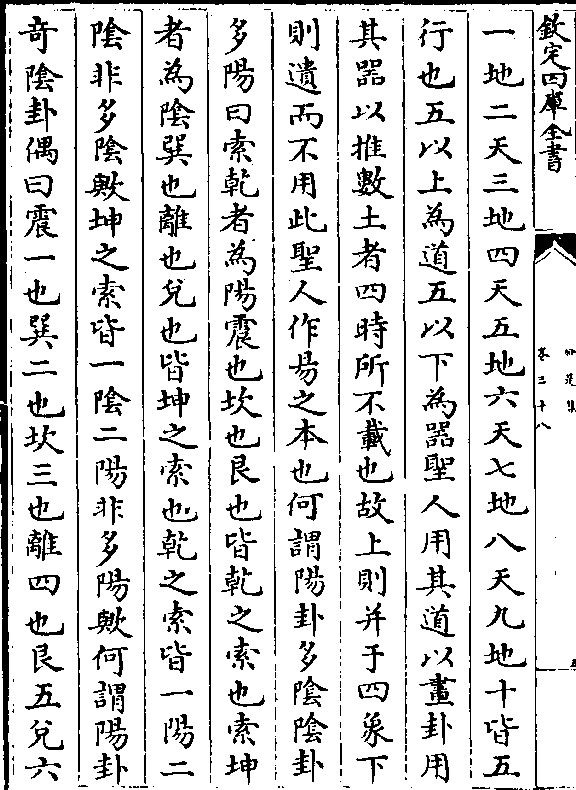 欽定四庫全書
卷三十八
一地二天三地四天五地六天七地八天九地十皆五
行也五以上為道五以下為器聖人用其道以畫卦用
其器以推數土者四時所不載也故上則并于四象下
則遺而不用此聖人作易之本也何謂陽卦多陰陰卦
多陽曰索乾者為陽震也坎也艮也皆乾之索也索坤
者為陰巽也離也兌也皆坤之索也乾之索皆一陽二
陰非多陰歟坤之索皆一陰二陽非多陽歟何謂陽卦
奇陰卦偶曰震一也巽二也坎三也離四也艮五兌六